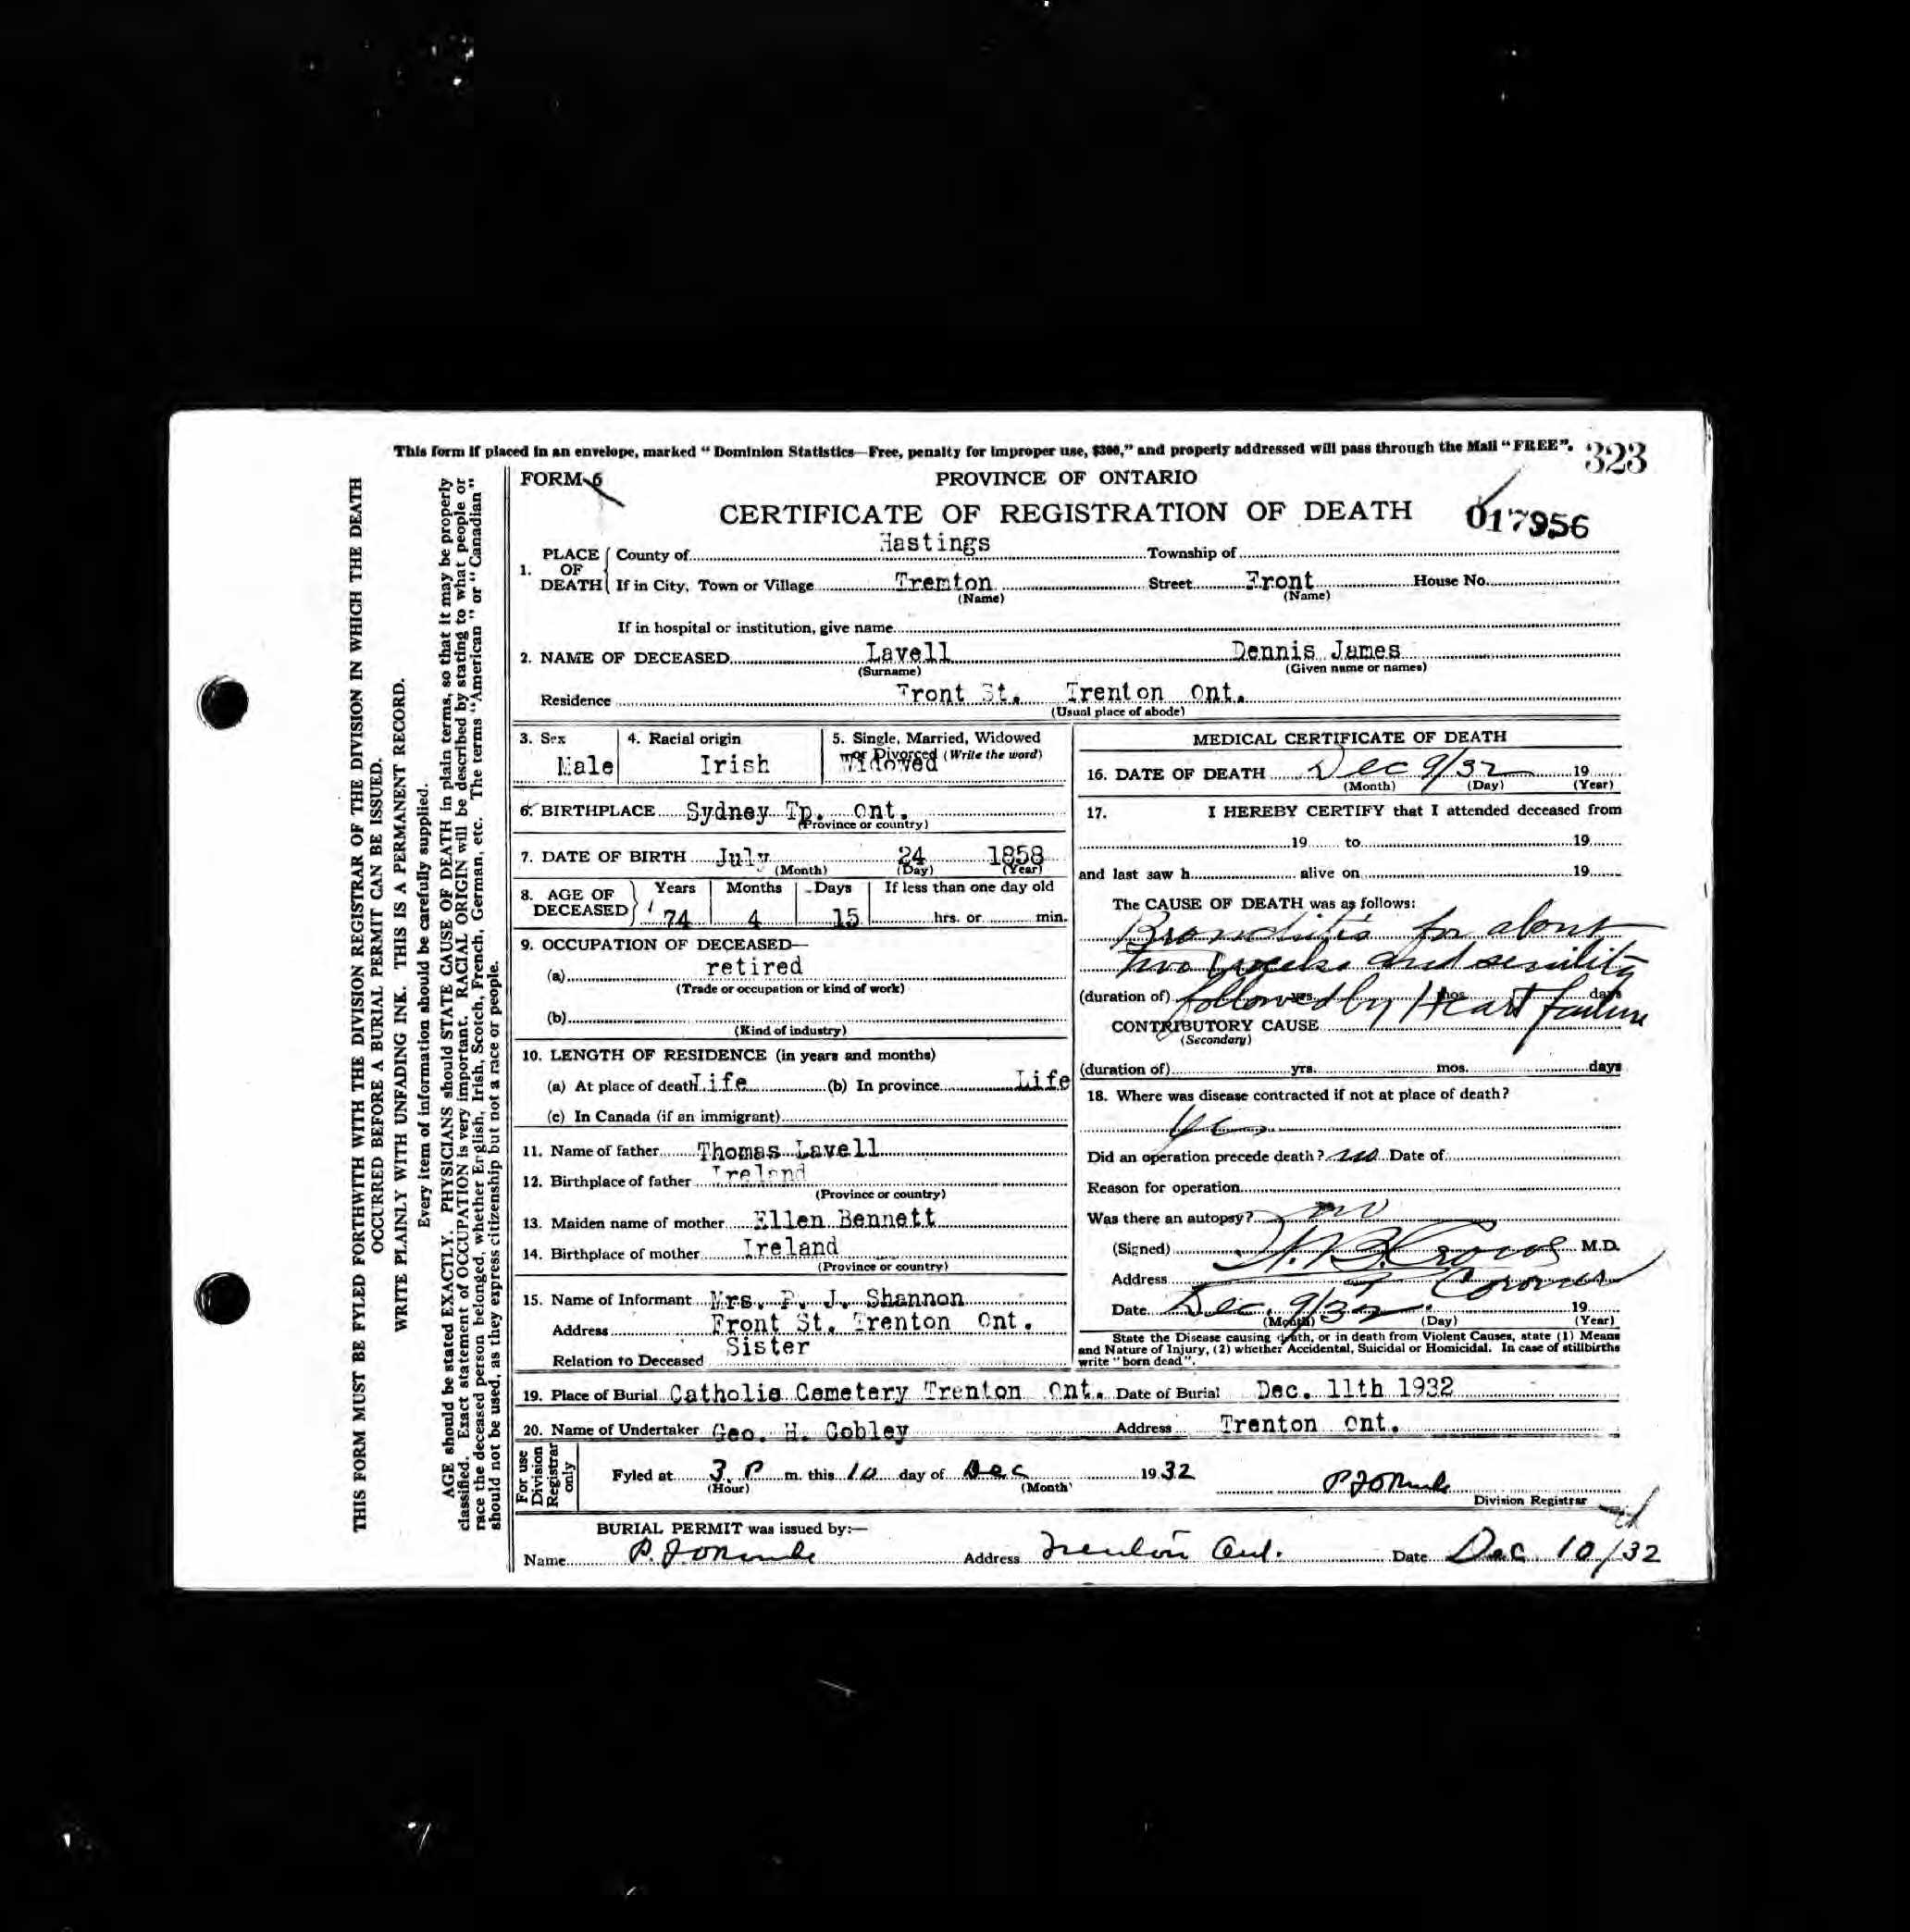 This form if placed in an envelope, marked "Dominion Statistics—Free, penalty for improper use, $300," and properly addressed will pass through the Mail "FREE".
323
FORM 6
PROVINCE OF ONTARIO
CERTIFICATE OF REGISTRATION OF DEATH
017956
1. PLACE OF DEATH County of Hastings Township of
If in City, Town or Village Tremton Street Front House No.
(Name) (Name)
If in hospital or institution, give name
2. NAME OF DECEASED Lavell Dennis James
(Surname) (Given name or names)
Residence Front St. Trenton Ont.
(Usual place of abode)
3. Sex Male
4. Racial origin Irish
5. Single, Married, Widowed or Divorced (Write the word) Widowed
6. BIRTHPLACE Sydney Tp. Ont.
(Province or country)
7. DATE OF BIRTH July 24 1858
(Month) (Day) (Year)
8. AGE OF DECEASED Years Months Days If less than one day old
74 4 15 hrs. or min.
9. OCCUPATION OF DECEASED—
(a) retired
(Trade or occupation or kind of work)
(b)
(Kind of industry)
10. LENGTH OF RESIDENCE (in years and months)
(a) At place of death Life (b) In province Life
(c) In Canada (if an immigrant)
11. Name of father Thomas Lavell
12. Birthplace of father Ireland
(Province or country)
13. Maiden name of mother Ellen Bennett
14. Birthplace of mother Ireland
(Province or country)
15. Name of Informant Mrs. P. J. Shannon
Address Front St. Trenton Ont.
Relation to Deceased Sister
MEDICAL CERTIFICATE OF DEATH
16. DATE OF DEATH Dec 9/32 19
(Month) (Day) (Year)
17. I HEREBY CERTIFY that I attended deceased from
19 to 19
and last saw h alive on 19
The CAUSE OF DEATH was as follows:
Bronchitis for about
two weeks and senility
(duration of) yrs. mos. days
followed by Heart failure
CONTRIBUTORY CAUSE
(Secondary)
(duration of) yrs. mos. days
18. Where was disease contracted if not at place of death?
yes
Did an operation precede death? no Date of
Reason for operation
Was there an autopsy? no
(Signed) M.D.
Address
Date Dec. 9/32 19
(Month) (Day) (Year)
State the Disease causing death, or in death from Violent Causes, state (1) Means
and Nature of Injury, (2) whether Accidental, Suicidal or Homicidal. In case of stillbirths
write "born dead".
19. Place of Burial Catholic Cemetery Trenton Ont. Date of Burial Dec. 11th 1932
20. Name of Undertaker Geo. H. Cobley Address Trenton Ont.
For use Division Registrar only
Fyled at 3 P m. this 10 day of Dec 1932
(Hour) (Month)
Division Registrar
BURIAL PERMIT was issued by:—
Name Address Trenton Ont. Date Dec 10/32
THIS FORM MUST BE FYLED FORTHWITH WITH THE DIVISION REGISTRAR OF THE DIVISION IN WHICH THE DEATH
OCCURRED BEFORE A BURIAL PERMIT CAN BE ISSUED.
WRITE PLAINLY WITH UNFADING INK. THIS IS A PERMANENT RECORD.
Every item of information should be carefully supplied.
AGE should be stated EXACTLY. PHYSICIANS should STATE CAUSE OF DEATH in plain terms, so that it may be properly
classified. Exact statement of OCCUPATION is very important. RACIAL ORIGIN will be described by stating to what people or
race the deceased person belonged, whether English, Irish, Scotch, French, German, etc. The terms "American" or "Canadian"
should not be used, as they express citizenship but not a race or people.